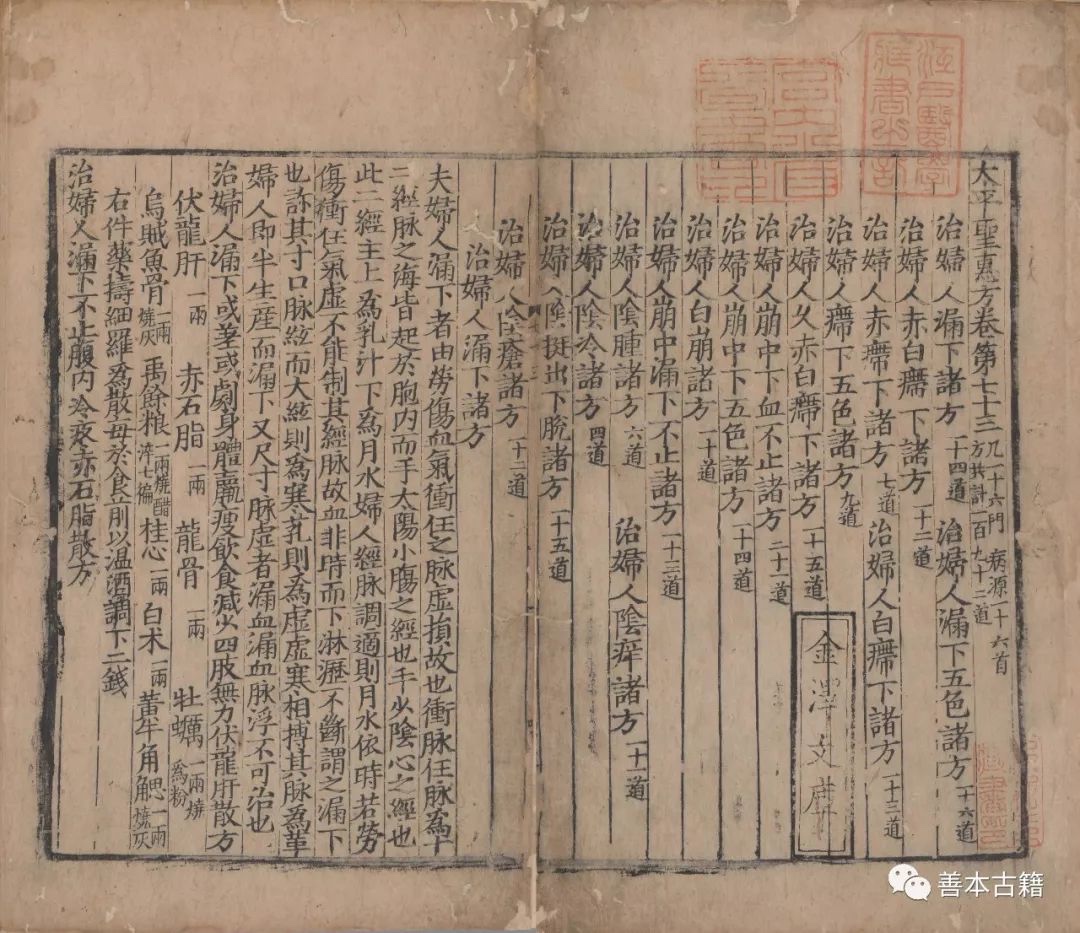 太平聖惠方卷第七十三 凡一十六門 病源一十六首 方共計一百九十二道
治婦人漏下諸方 一十四道 治婦人漏下五色諸方 一十六道
治婦人赤白𤻤下諸方 十二道
治婦人赤𤻤下諸方 七道 治婦人白𤻤下諸方 一十三道
治婦人𤻤下五色諸方 九道
治婦人久赤白𤻤下諸方 一十五道
治婦人崩中下血不止諸方 二十一道
治婦人崩中下五色諸方 一十四道
治婦人白崩諸方 一十道
治婦人崩中漏下不止諸方 一十三道
治婦人陰腫諸方 六道 治婦人陰痒諸方 一十一道
治婦人陰冷諸方 四道
治婦人陰挺出下脫諸方 一十五道
治婦人陰瘡諸方 一十二道
治婦人漏下諸方
夫婦人漏下者由勞傷血氣衝任之脉虛損故也衝脉任脉為十
二經脉之海皆起於胞內而手太陽小腸之經也手少陰心之經也
此二經主上為乳汁下為月水婦人經脉調適則月水依時若勞
傷衝任氣虛不能制其經脉故血非時而下淋瀝不斷謂之漏下
也診其寸口脉弦而大弦則為寒芤則為虛虛寒相搏其脉為革
婦人即半生産而漏下又尺寸脉虛者漏血漏血脉浮不可治也
治婦人漏下或差或劇身體羸瘦飲食減少四肢無力伏龍肝散方
伏龍肝 一兩 赤石脂 一兩 龍骨 一兩 牡蠣 一兩燒為粉
烏賊魚骨 一兩燒灰 禹餘粮 一兩燒醋淬七徧 桂心 一兩 白术 一兩 黃牛角䚡 一兩燒灰
右件藥擣細羅為散每於食前以温酒調下二錢
治婦人漏下不止腹內冷疼赤石脂散方
金澤文庫
江戶醫學藏書之記
善本古籍